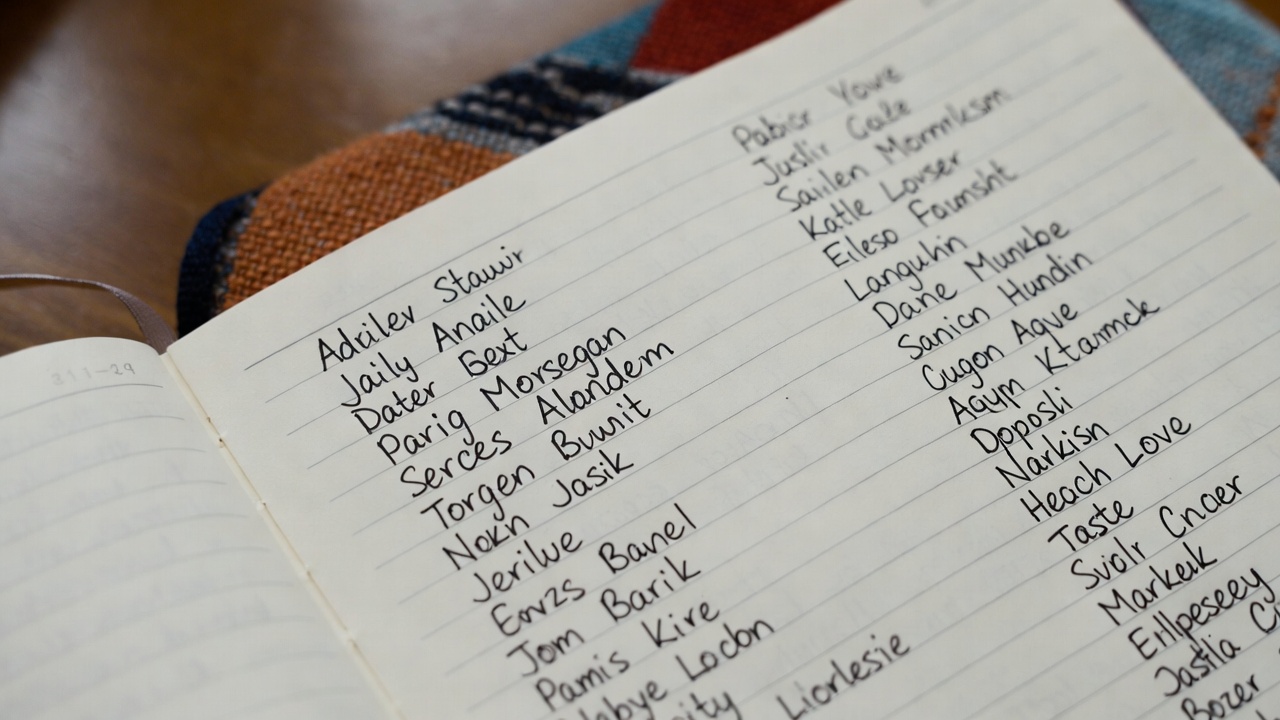 311-29
Adriler Stauir
Jaily Anaile
Dater Бext
Parig Morsegan
Serces Alandem
Torgen Buunit
Nokn Jasik
Jerilue
Banel
Jom Barik
Pamis Kire
Locbn
Liorlesie
Pabisr Yowe
Juslir Cale
Saiilen Mormlksm
Katle Lovser
Eileso Foumsht
Languhin
Dane Munkbe
Sanicn Hundin
Cugon Aqve
Aqym Ktarmck
Doposli
Narkisn
Heach Love
Taste
Svalr Cnaer
Markeik
Eillpeseey
Jastla
Bozer